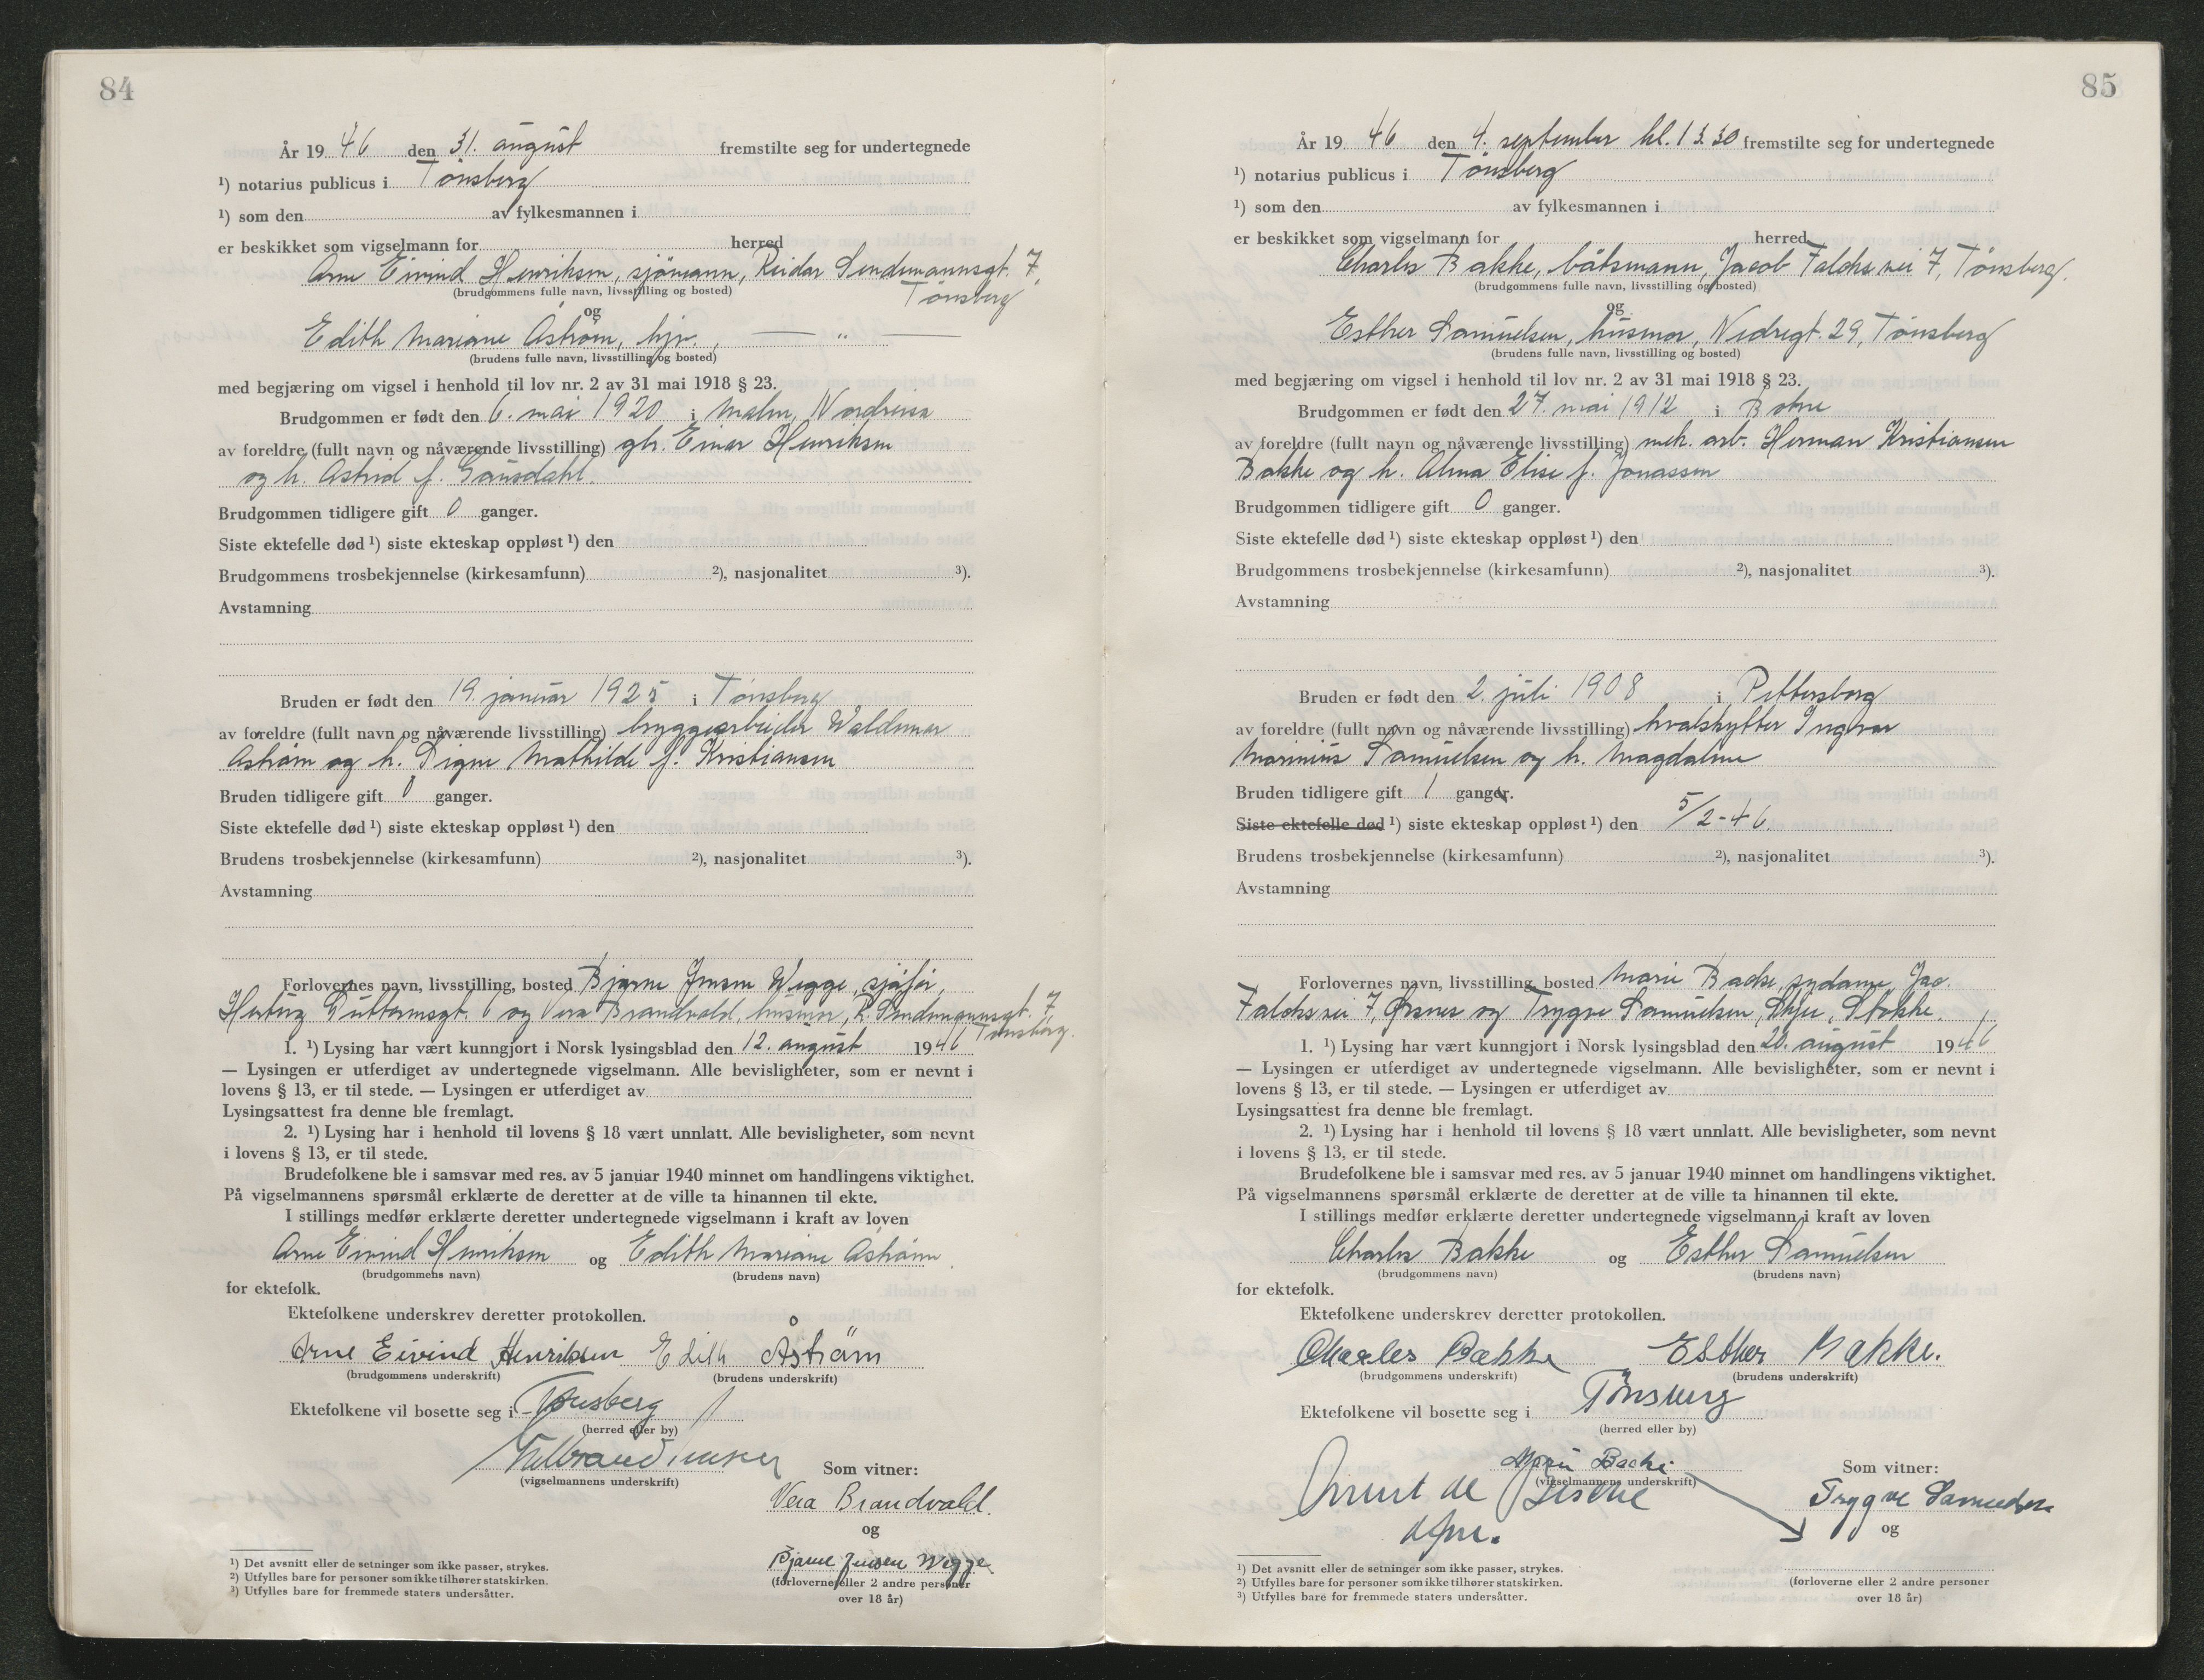 84
År 19 46 den 31. august fremstilte seg for undertegnede
¹) notarius publicus i Tönsberg
¹) som den av fylkesmannen i
er beskikket som vigselmann for herred
Arne Eivind Henriksen, sjömann, Reidar Sendemannsgt. 7,
(brudgommens fulle navn, livsstilling og bosted) Tönsberg
og
Edith Mariane Åström, hjv. , — „ —
(brudens fulle navn, livsstilling og bosted)
med begjæring om vigsel i henhold til lov nr. 2 av 31 mai 1918 § 23.
Brudgommen er født den 6. mai 1920 i Malm,
av foreldre (fullt navn og nåværende livsstilling) Einar Henriksen
og h. Astrid f. Gausdahl.
Brudgommen tidligere gift 0 ganger.
Siste ektefelle død ¹) siste ekteskap oppløst ¹) den
Brudgommens trosbekjennelse (kirkesamfunn) ²), nasjonalitet ³).
Avstamning
Bruden er født den 19. januar 1925 i Tönsberg
av foreldre (fullt navn og nåværende livsstilling) bryggearbeider Waldemar
Åström og h. Signe Mathilde f. Kristiansen
Bruden tidligere gift 0 ganger.
Siste ektefelle død ¹) siste ekteskap oppløst ¹) den
Brudens trosbekjennelse (kirkesamfunn) ²), nasjonalitet ³).
Avstamning
Forlovernes navn, livsstilling, bosted Bjarne Jensen Wegge, sjåför,
Hertug Guttormsgt. 6 og Vera Brandvold, husmor, R. Sendemannsgt. 7
Tönsberg.
1. ¹) Lysing har vært kunngjort i Norsk lysingsblad den 12. august 1946
— Lysingen er utferdiget av undertegnede vigselmann. Alle bevisligheter, som er nevnt i
lovens § 13, er til stede. — Lysingen er utferdiget av
Lysingsattest fra denne ble fremlagt.
2. ¹) Lysing har i henhold til lovens § 18 vært unnlatt. Alle bevisligheter, som nevnt
i lovens § 13, er til stede.
Brudefolkene ble i samsvar med res. av 5 januar 1940 minnet om handlingens viktighet.
På vigselmannens spørsmål erklærte de deretter at de ville ta hinannen til ekte.
I stillings medfør erklærte deretter undertegnede vigselmann i kraft av loven
Arne Eivind Henriksen og Edith Mariane Åström
(brudgommens navn) (brudens navn)
for ektefolk.
Ektefolkene underskrev deretter protokollen.
Arne Eivind Henriksen Edith Åström
(brudgommens underskrift) (brudens underskrift)
Ektefolkene vil bosette seg i Tønsberg
(herred eller by)
(vigselmannens underskrift) Som vitner:
Vera Brandvold.
og
Bjarne Jensen Wegge
(forloverne eller 2 andre personer
over 18 år)
¹) Det avsnitt eller de setninger som ikke passer, strykes.
²) Utfylles bare for personer som ikke tilhører statskirken.
³) Utfylles bare for fremmede staters undersåtter.
85
År 19 46 den 4. september kl. 13.30 fremstilte seg for undertegnede
¹) notarius publicus i Tönsberg
¹) som den av fylkesmannen i
er beskikket som vigselmann for herred
Charles Bakke, båtsmann, Jacob Falcks vei 7, Tönsberg.
(brudgommens fulle navn, livsstilling og bosted)
og
Esther Samuelsen, husmor, Nedregt. 29, Tönsberg
(brudens fulle navn, livsstilling og bosted)
med begjæring om vigsel i henhold til lov nr. 2 av 31 mai 1918 § 23.
Brudgommen er født den 27. mai 1912 i Botne
av foreldre (fullt navn og nåværende livsstilling) mek. arb. Herman Kristiansen
Bakke og h. Alma Elise f. Jonassen
Brudgommen tidligere gift 0 ganger.
Siste ektefelle død ¹) siste ekteskap oppløst ¹) den
Brudgommens trosbekjennelse (kirkesamfunn) ²), nasjonalitet ³).
Avstamning
Bruden er født den 2. juli 1908 i Pettersborg
av foreldre (fullt navn og nåværende livsstilling) hvalskytter Ingvar
Marinius Samuelsen og h. Magdalene
Bruden tidligere gift 1 ganger.
Siste ektefelle død ¹) siste ekteskap oppløst ¹) den 5/2-46.
Brudens trosbekjennelse (kirkesamfunn) ²), nasjonalitet ³).
Avstamning
Forlovernes navn, livsstilling, bosted Marie Backe, sydame, Jac.
Falcks vei 7, Ørsnes og Trygve Samuelsen, Skjee, Stokke.
1. ¹) Lysing har vært kunngjort i Norsk lysingsblad den 20. august 1946
— Lysingen er utferdiget av undertegnede vigselmann. Alle bevisligheter, som er nevnt i
lovens § 13, er til stede. — Lysingen er utferdiget av
Lysingsattest fra denne ble fremlagt.
2. ¹) Lysing har i henhold til lovens § 18 vært unnlatt. Alle bevisligheter, som nevnt
i lovens § 13, er til stede.
Brudefolkene ble i samsvar med res. av 5 januar 1940 minnet om handlingens viktighet.
På vigselmannens spørsmål erklærte de deretter at de ville ta hinannen til ekte.
I stillings medfør erklærte deretter undertegnede vigselmann i kraft av loven
Charles Bakke og Esther Samuelsen
(brudgommens navn) (brudens navn)
for ektefolk.
Ektefolkene underskrev deretter protokollen.
Charles Bakke Esther Bakke.
(brudgommens underskrift) (brudens underskrift)
Ektefolkene vil bosette seg i Tønsberg
(herred eller by)
Marie Backe
(vigselmannens underskrift) Som vitner:
Trygve Samuelsen
og
(forloverne eller 2 andre personer
over 18 år)
¹) Det avsnitt eller de setninger som ikke passer, strykes.
²) Utfylles bare for personer som ikke tilhører statskirken.
³) Utfylles bare for fremmede staters undersåtter.